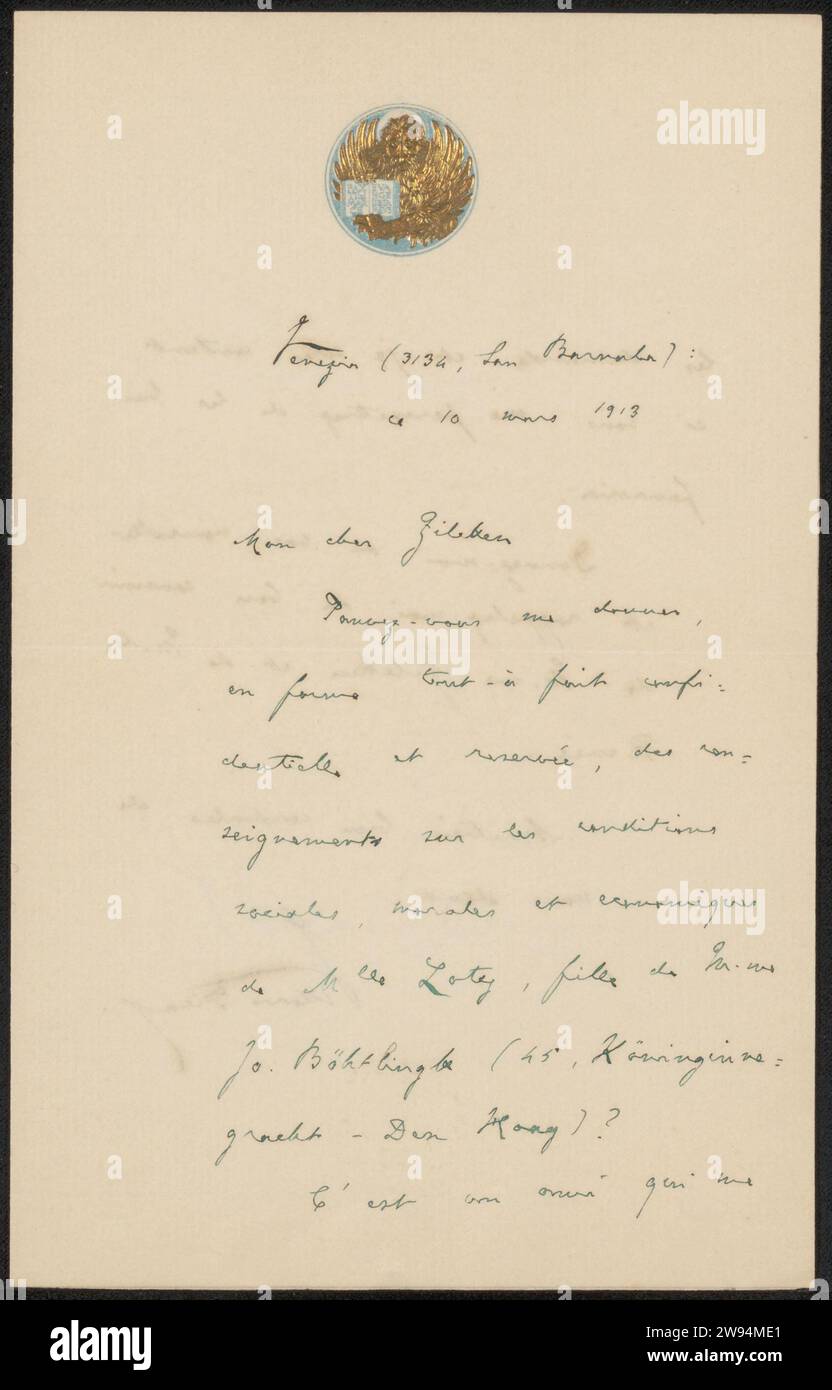 Venezia (3134, San Barnaba):
ce 10 mars 1913
Mon cher Zilcken
Pouvez-vous me donner,
en forme tout-à fait confi=
dentielle et reservée, des ren=
seignements sur les conditions
sociales, morales et economiques
de Mlle Loty, fille de M.me
Jo. Böhtlingk (45, Köninginne=
gracht - Den Haag)?
C'est un ami qui me
alamy
alamy
Image ID: 2W94ME1
www.alamy.com